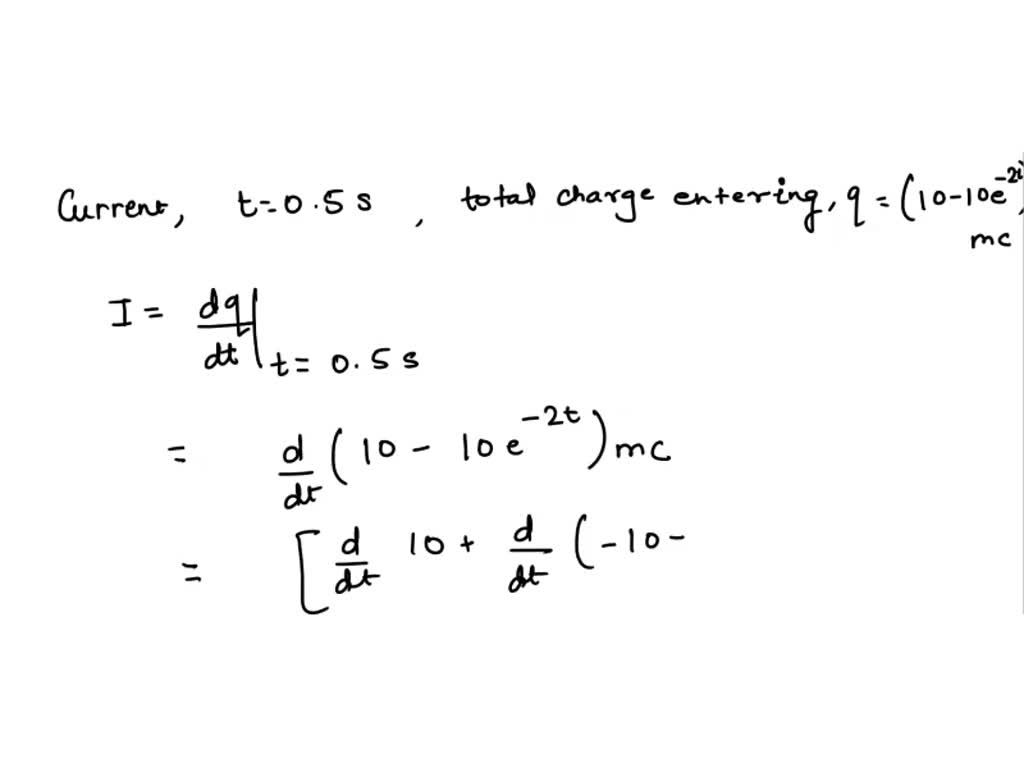 Current, t=0.5 s , total charge entering, q = (10-10e^-2t)
mc
I = dq/dt | t= 0.5 s
= d/dt (10 - 10e^-2t) mc
= [ d/dt 10 + d/dt (-10-